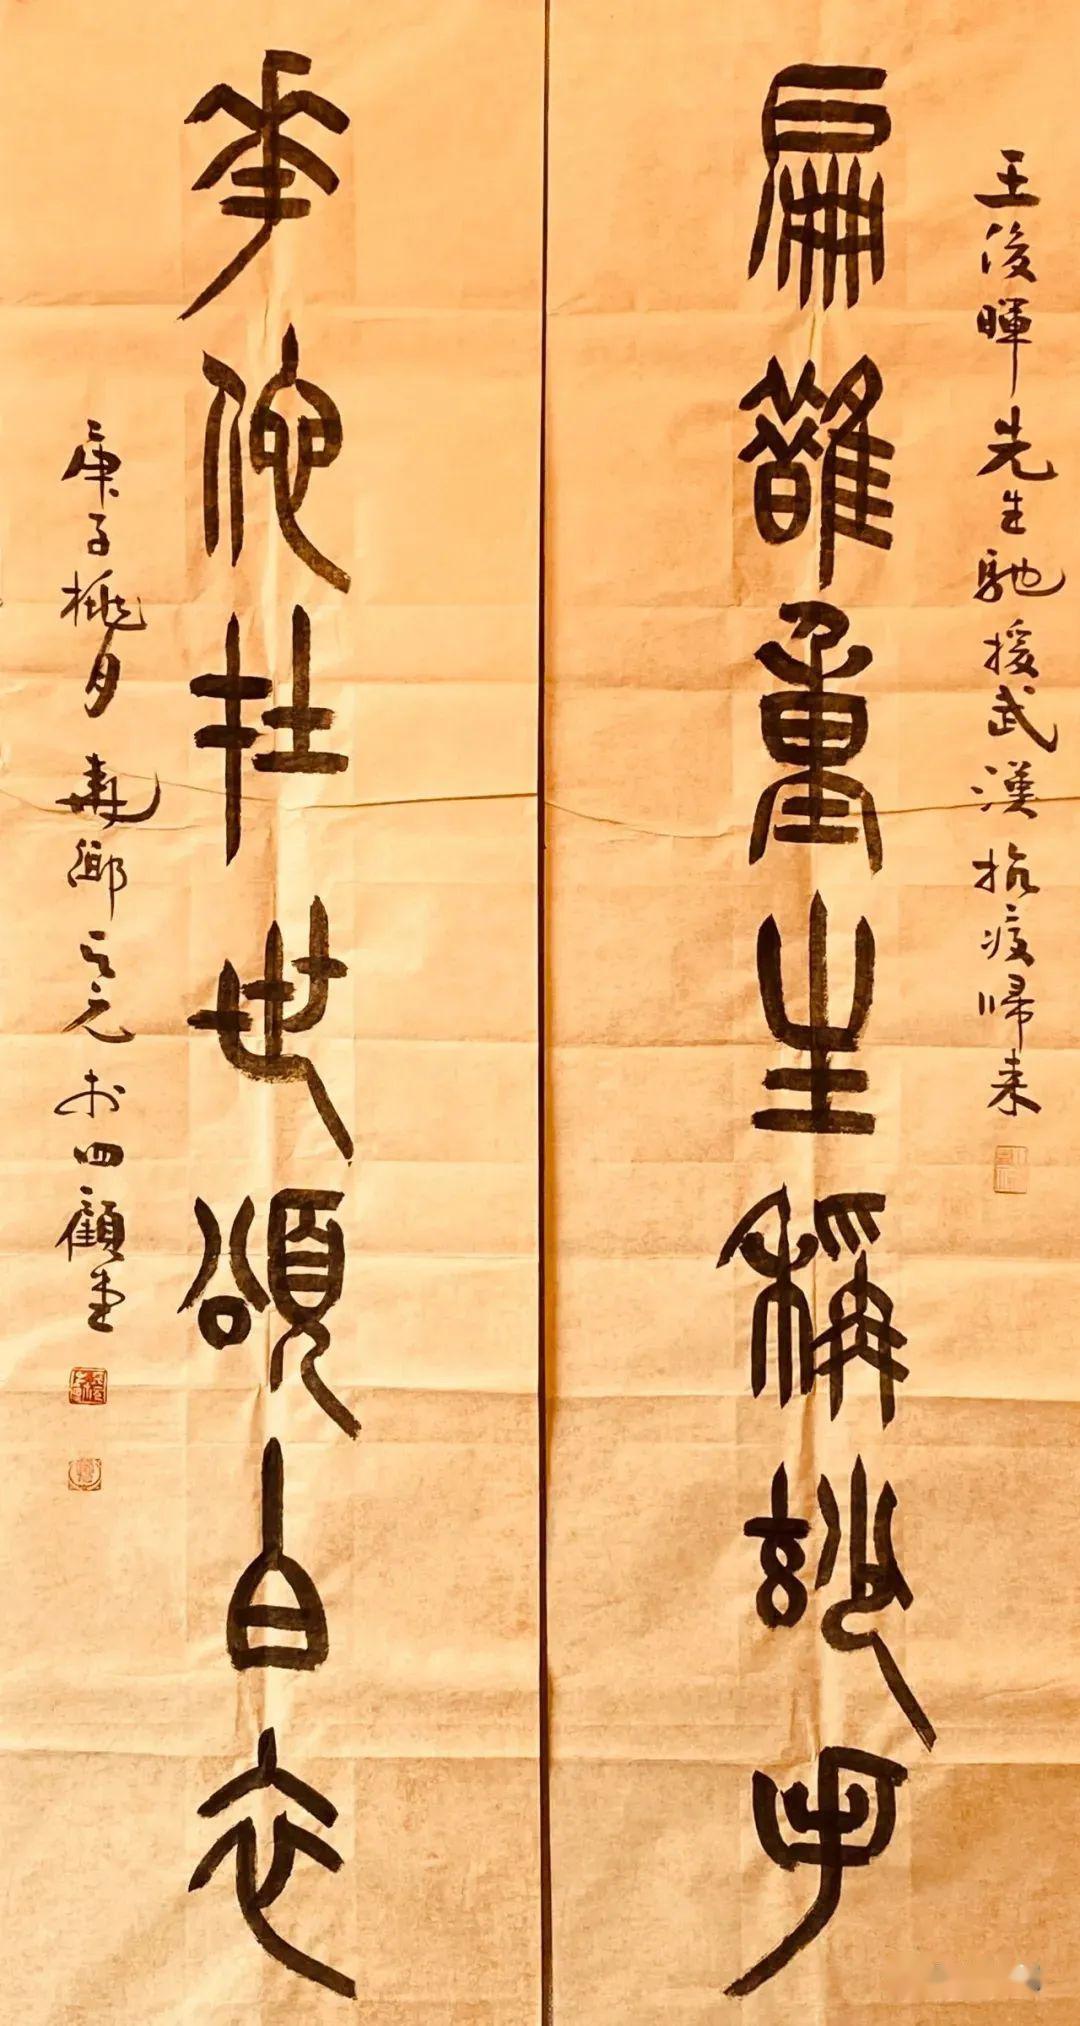 王俊暉先生馳援武漢抗疫歸来
扁䧿重生稱妙手
華佗在世頌白衣
庚子桃月壽鄉之元於四顧堂